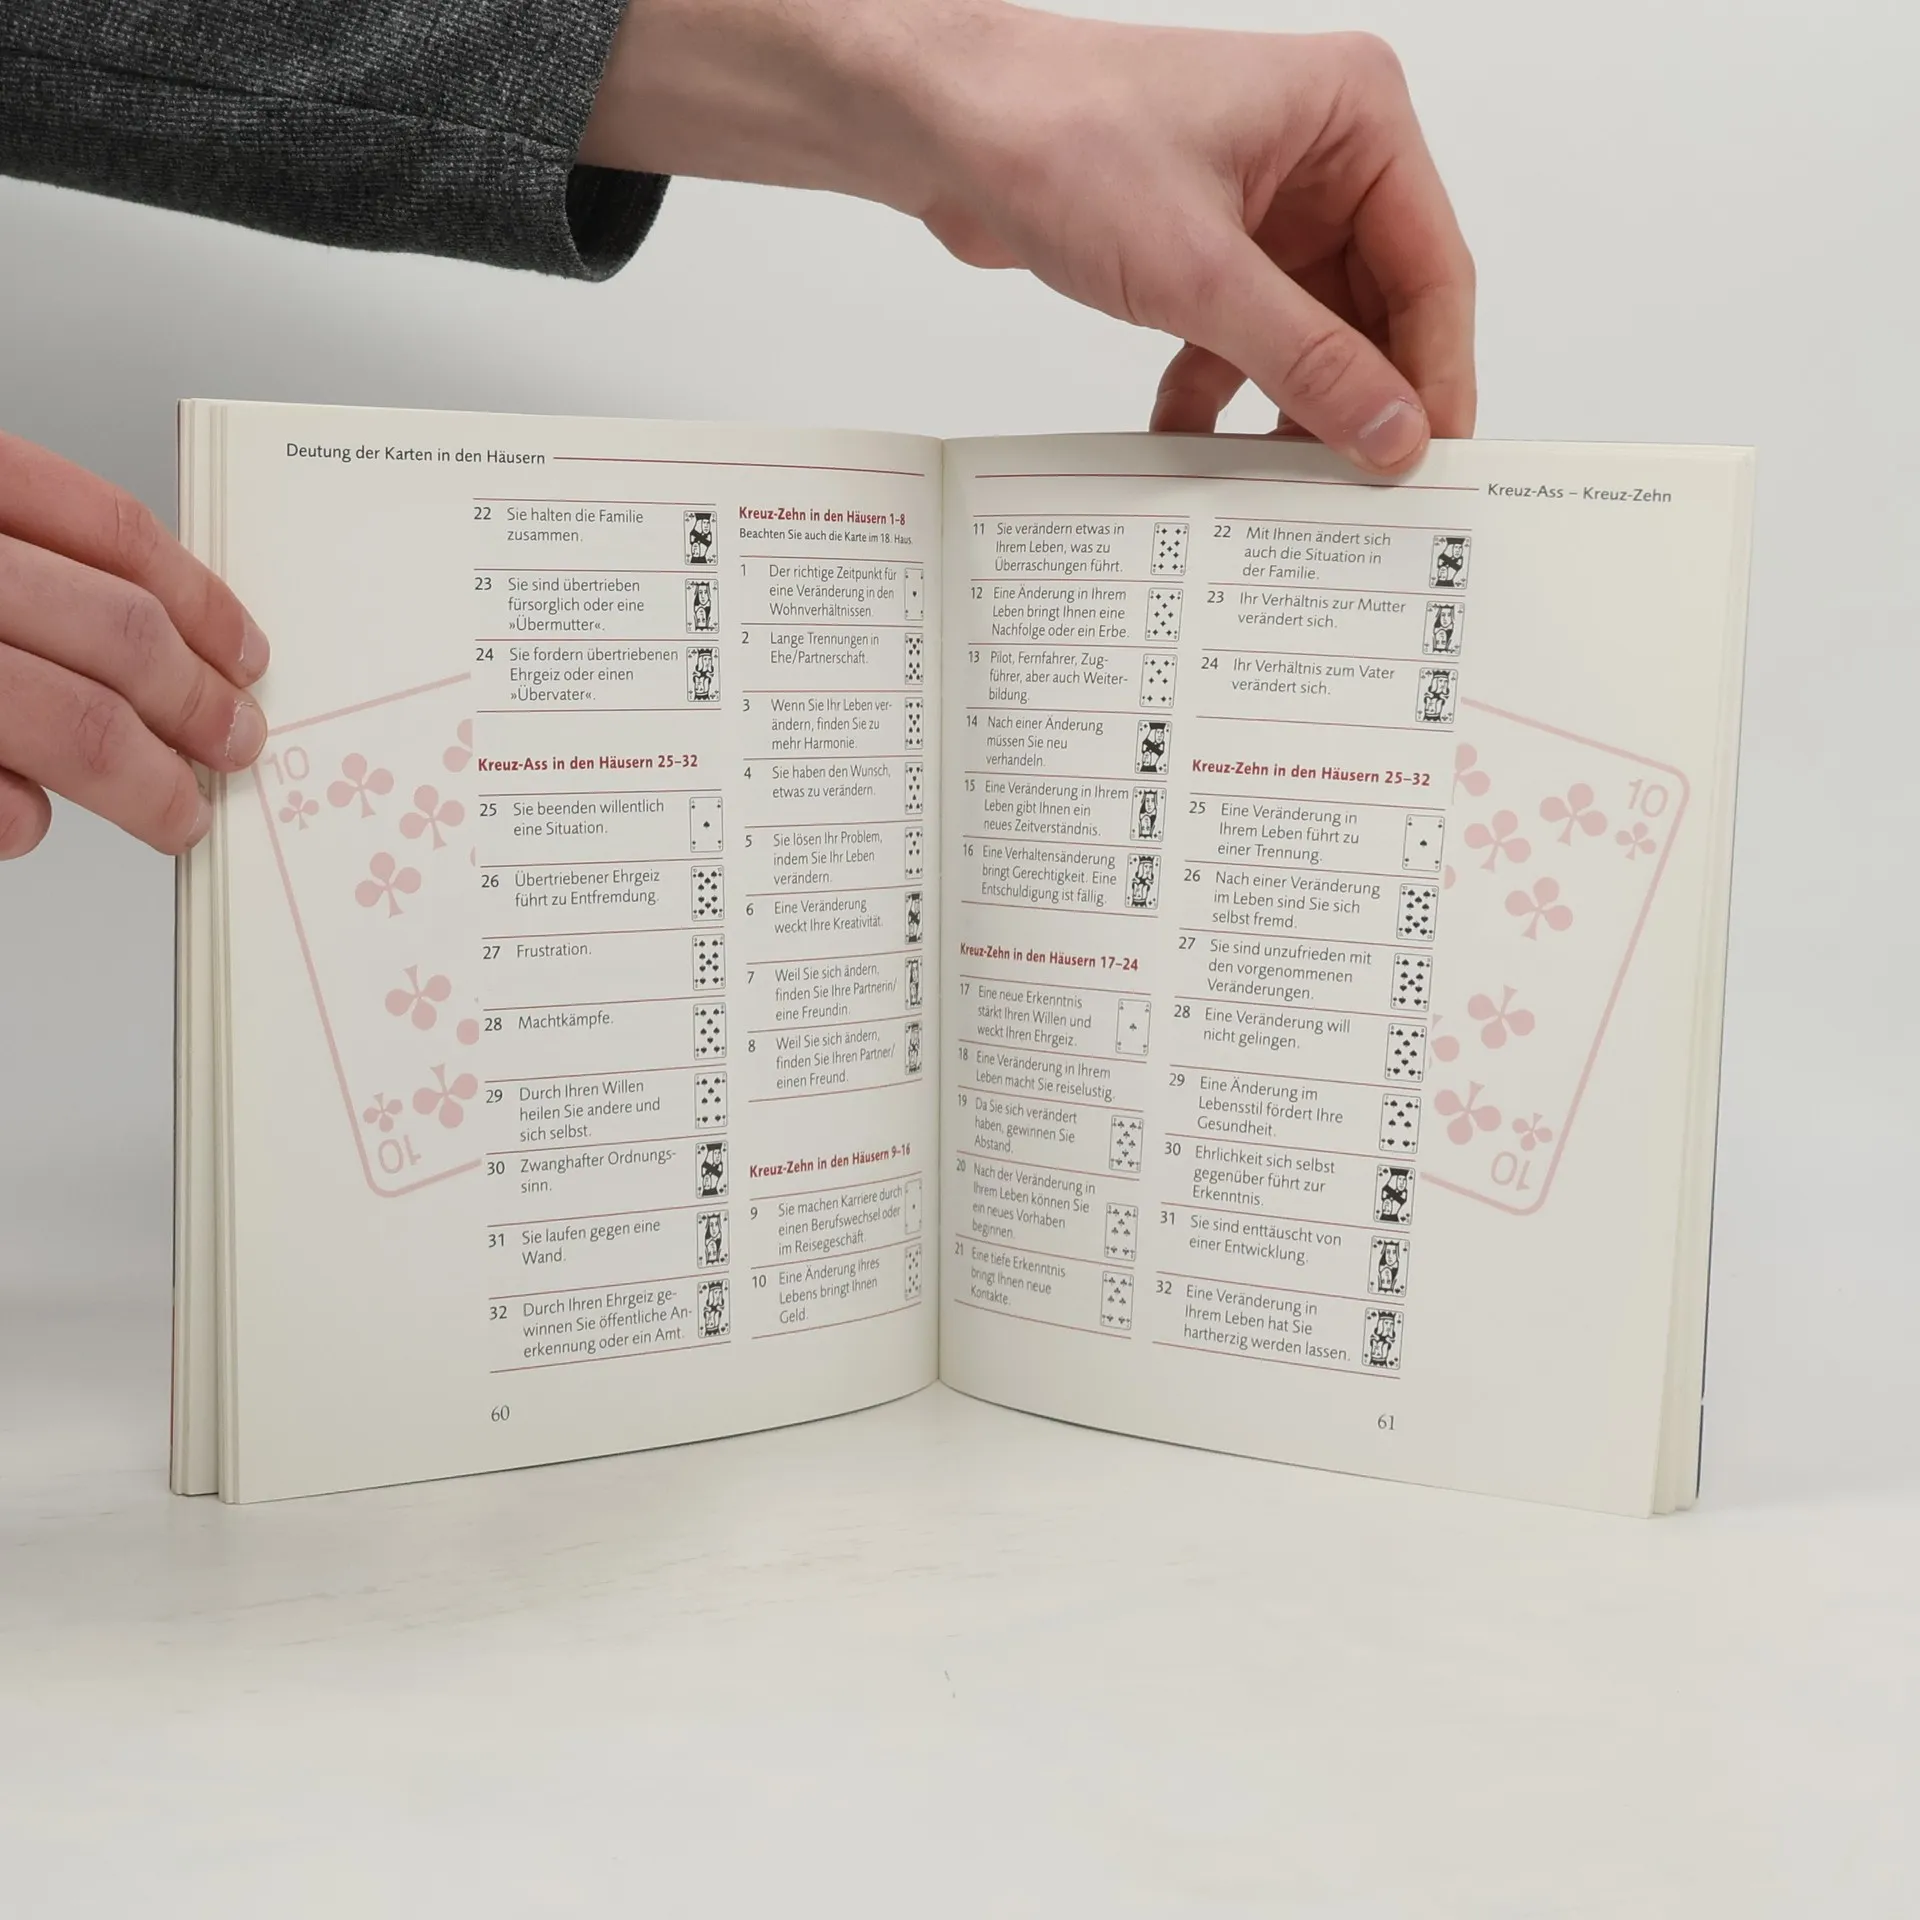 Deutung der Karten in den Häusern
22 Sie halten die Familie
zusammen.
23 Sie sind übertrieben
fürsorglich oder eine
»Übermutter«.
24 Sie fordern übertriebenen
Ehrgeiz oder einen
»Übervater«.
Kreuz-Ass in den Häusern 25–32
25 Sie beenden willentlich
eine Situation.
26 Übertriebener Ehrgeiz
führt zu Entfremdung.
27 Frustration.
28 Machtkämpfe.
29 Durch Ihren Willen
heilen Sie andere und
sich selbst.
30 Zwanghafter Ordnungs-
sinn.
31 Sie laufen gegen eine
Wand.
32 Durch Ihren Ehrgeiz ge-
winnen Sie öffentliche An-
erkennung oder ein Amt.
10
10
60
Kreuz-Zehn in den Häusern 1–8
Beachten Sie auch die Karte im 18. Haus.
1 Der richtige Zeitpunkt für
eine Veränderung in den
Wohnverhältnissen.
2 Lange Trennungen in
Ehe/Partnerschaft.
3 Wenn Sie Ihr Leben ver-
ändern, finden Sie zu
mehr Harmonie.
4 Sie haben den Wunsch,
etwas zu verändern.
5 Sie lösen Ihr Problem,
indem Sie Ihr Leben
verändern.
6 Eine Veränderung
weckt Ihre Kreativität.
7 Weil Sie sich ändern,
finden Sie Ihre Partnerin/
eine Freundin.
8 Weil Sie sich ändern,
finden Sie Ihren Partner/
einen Freund.
Kreuz-Zehn in den Häusern 9–16
9 Sie machen Karriere durch
einen Berufswechsel oder
im Reisegeschäft.
10 Eine Änderung Ihres
Lebens bringt Ihnen
Geld.
Kreuz-Ass – Kreuz-Zehn
11 Sie verändern etwas in
Ihrem Leben, was zu
Überraschungen führt.
12 Eine Änderung in Ihrem
Leben bringt Ihnen eine
Nachfolge oder ein Erbe.
13 Pilot, Fernfahrer, Zug-
führer, aber auch Weiter-
bildung.
14 Nach einer Änderung
müssen Sie neu
verhandeln.
15 Eine Veränderung in Ihrem
Leben gibt Ihnen ein
neues Zeitverständnis.
16 Eine Verhaltensänderung
bringt Gerechtigkeit. Eine
Entschuldigung ist fällig.
Kreuz-Zehn in den Häusern 17–24
17 Eine neue Erkenntnis
stärkt Ihren Willen und
weckt Ihren Ehrgeiz.
18 Eine Veränderung in Ihrem
Leben macht Sie reiselustig.
19 Da Sie sich verändert
haben, gewinnen Sie
Abstand.
20 Nach der Veränderung in
Ihrem Leben können Sie
ein neues Vorhaben
beginnen.
21 Eine tiefe Erkenntnis
bringt Ihnen neue
Kontakte.
22 Mit Ihnen ändert sich
auch die Situation in
der Familie.
23 Ihr Verhältnis zur Mutter
verändert sich.
24 Ihr Verhältnis zum Vater
verändert sich.
Kreuz-Zehn in den Häusern 25–32
25 Eine Veränderung in
Ihrem Leben führt zu
einer Trennung.
26 Nach einer Veränderung
im Leben sind Sie sich
selbst fremd.
27 Sie sind unzufrieden mit
den vorgenommenen
Veränderungen.
28 Eine Veränderung will
nicht gelingen.
29 Eine Änderung im
Lebensstil fördert Ihre
Gesundheit.
30 Ehrlichkeit sich selbst
gegenüber führt zur
Erkenntnis.
31 Sie sind enttäuscht von
einer Entwicklung.
32 Eine Veränderung in
Ihrem Leben hat Sie
hartherzig werden lassen.
10
10
61